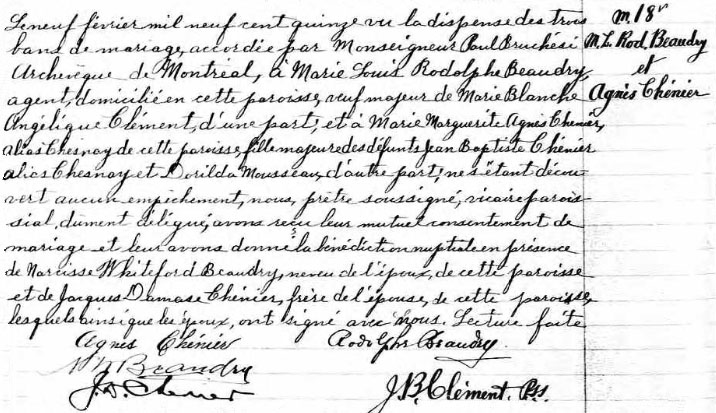 Le neuf février mil neuf cent quinze vu la dispense des trois
bans de mariage, accordée par Monseigneur Paul Bruchési
Archevêque de Montréal, à Marie Louis Rodolphe Beaudry
agent, domicilié en cette paroisse, veuf majeur de Marie Blanche
Angélique Clément, d'une part; et à Marie Marguerite Agnès Chénier,
alias Chesnay de cette paroisse, fille majeure des défunts Jean Baptiste Chénier
alias Chesnay et Dorilda Mousseau, d'autre part; ne s'étant décou
vert aucun empêchement, nous, prêtre soussigné, vicaire parois
sial, dûment délégué, avons reçu leur mutuel consentement de
mariage et leur avons donné la bénédiction nuptiale en présence
de Narcisse Whiteford Beaudry, neveu de l'époux, de cette paroisse
et de Jacques Damase Chénier, frère de l'épouse, de cette paroisse,
lesquels ainsi que les époux, ont signé avec nous. Lecture faite
Agnès Chénier Rodolphe Beaudry
Beaudry
J. D. Chenier J. B. Clément. Pss.
m 18
M. L. Rod. Beaudry
et
Agnès Chénier